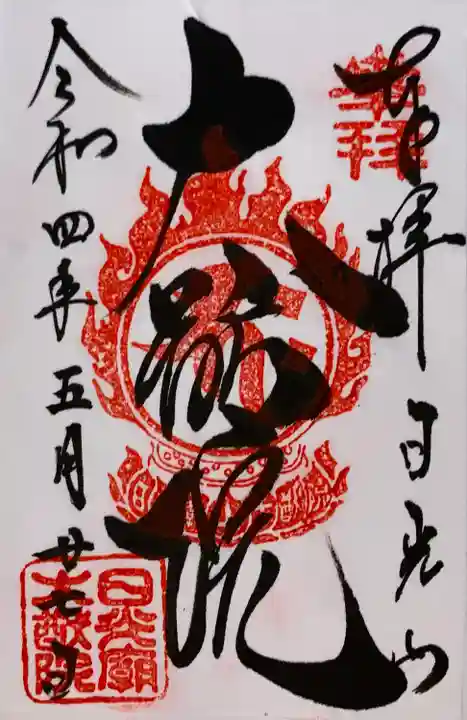 奉拝 日光山
大猷院
令和四年五月廿七日
奉拝
日光廟
大猷院